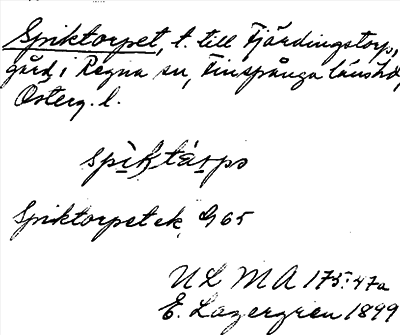 Spiktorpet, t. till Fjärdingstorp,
gård, i Regna sn, Finspånga länshd,
Österg. l.
spìktárpə
Spiktorpet ek. G 65
ULMA 175:47a
E. Lagergren 1899